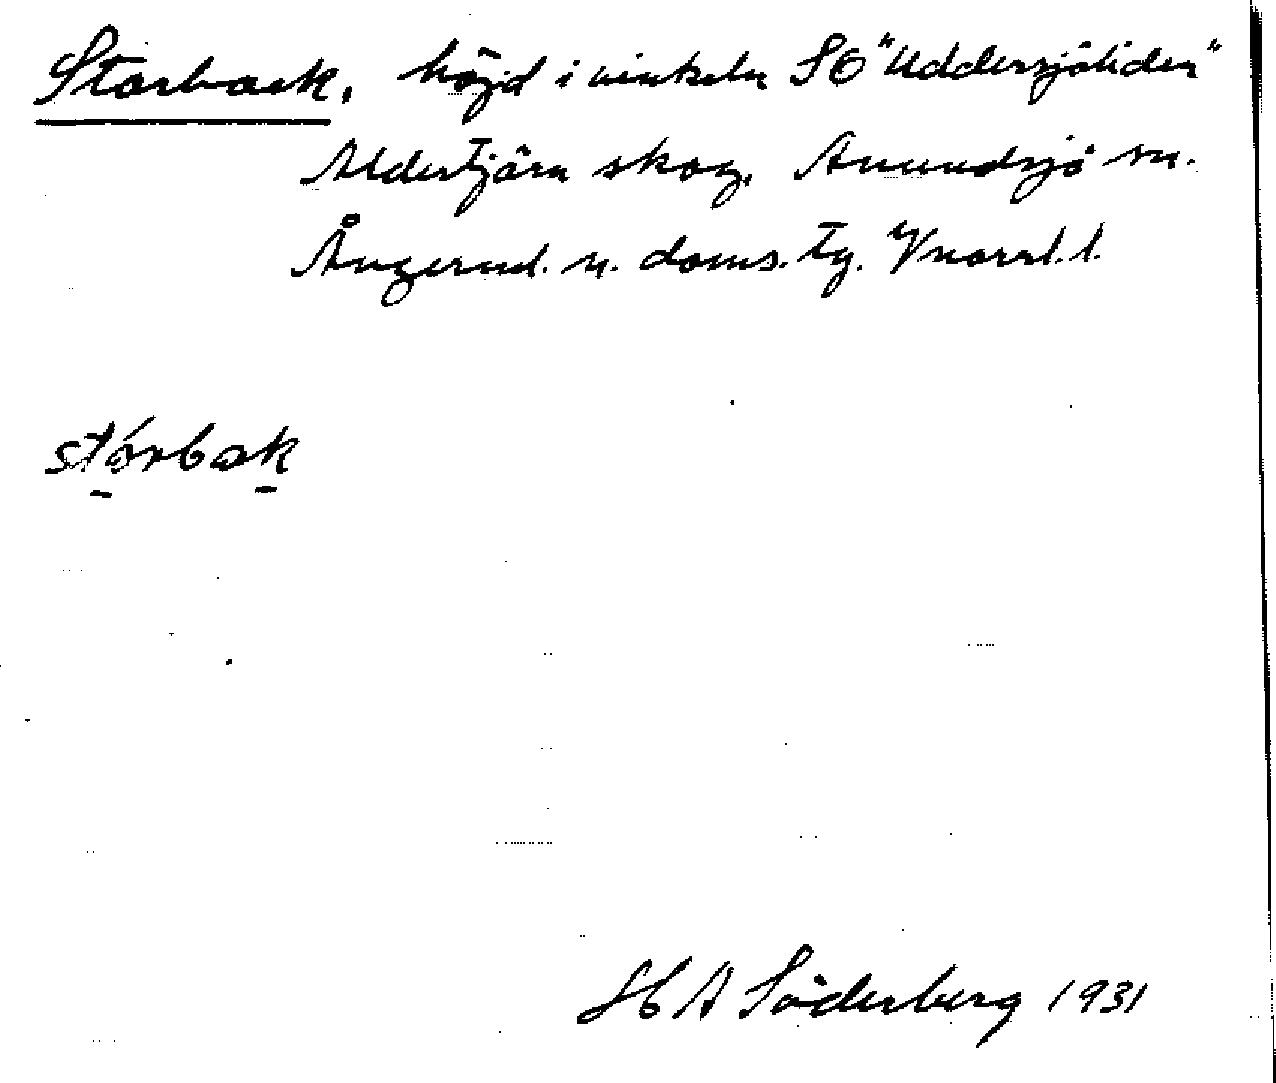 Storback, höjd i vinkeln SO "Uddersjöliden"
Aldertjärn skog, Anundsjö sn.
Ångerml. n. doms. tg. Vnorrl. l.
stórbak
H A Söderberg 1931